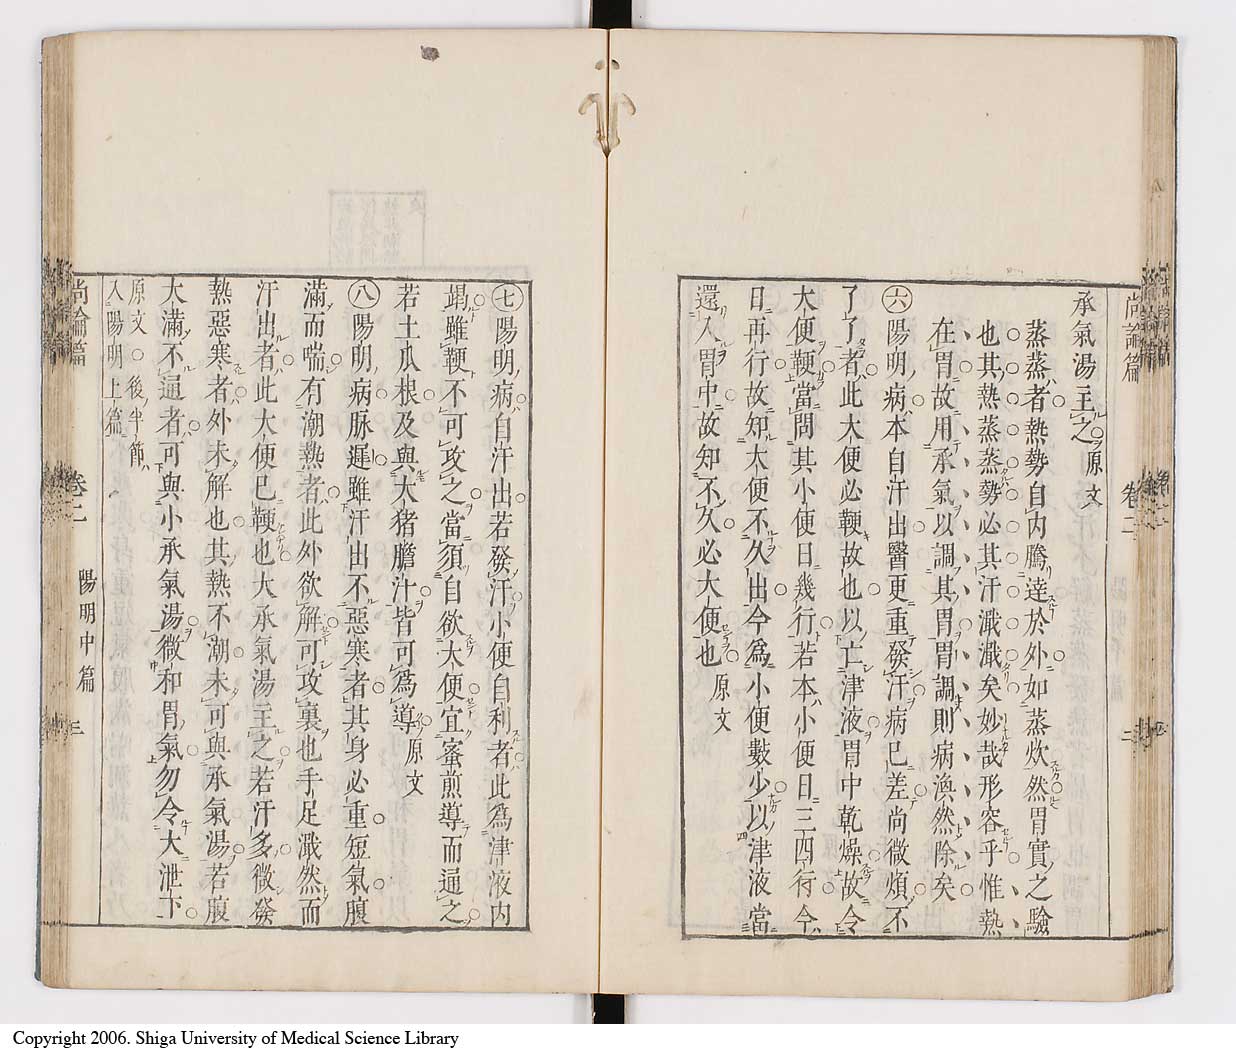 尚論篇
卷二
二
承氣湯主之原文
蒸蒸者熱勢自内騰達於外如蒸炊然胃實之驗
也其熱蒸蒸勢必其汗濈濈矣妙哉形容乎惟熱
在胃故用承氣以調其胃胃調則病渙然除矣
㊅陽明病本自汗出醫更重發汗病已差尚微煩不
了了者此大便必鞕故也以亡津液胃中乾燥故令
大便鞕當問其小便日幾行若本小便日三四行今
日再行故知大便不久出今爲小便數少以津液當
還入胃中故知不久必大便也原文
㊆陽明病自汗出若發汗小便自利者此爲津液内
竭雖鞕不可攻之當須自欲大便宜蜜煎導而通之
若土瓜根及與大猪膽汁皆可爲導原文
㊇陽明病脉遲雖汗出不惡寒者其身必重短氣腹
滿而喘有潮熱者此外欲解可攻裏也手足濈然而
汗出者此大便已鞕也大承氣湯主之若汗多微發
熱惡寒者外未解也其熱不潮未可與承氣湯若腹
大滿不通者可與小承氣湯微和胃氣勿令大泄下
原文○後半節
入陽明上篇
尚論篇
卷二
陽明中篇
三
Copyright 2006. Shiga University of Medical Science Library